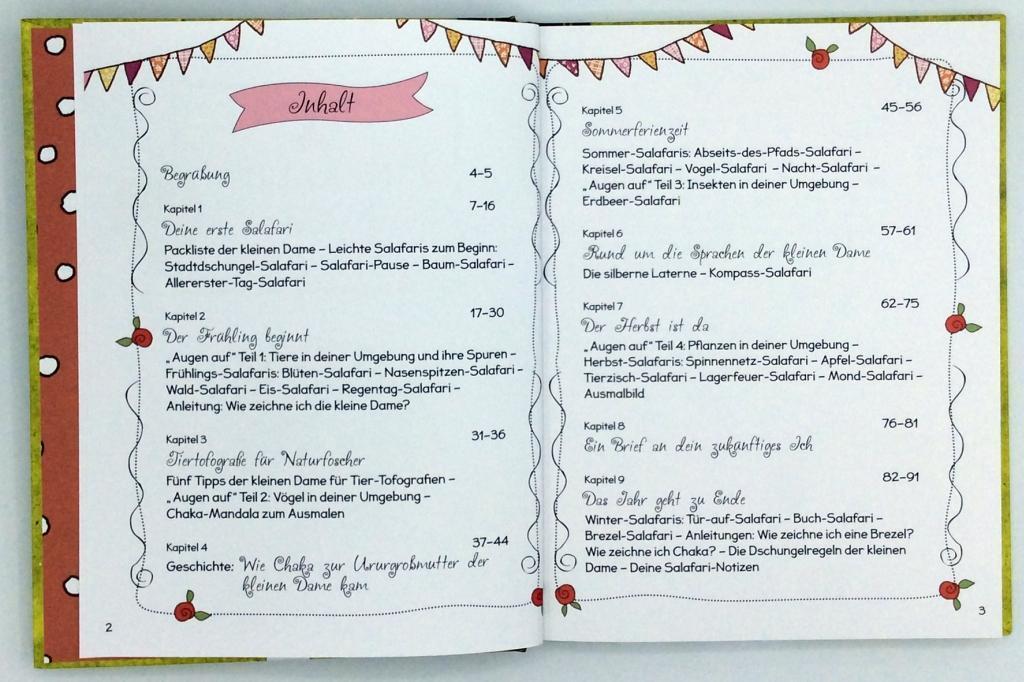 Inhalt
Begrabung 4-5
Kapitel 1 7-16
Deine erste Salafari
Packliste der kleinen Dame – Leichte Salafaris zum Beginn:
Stadtdschungel-Salafari – Salafari-Pause – Baum-Salafari –
Allererster-Tag-Salafari
Kapitel 2 17-30
Der Frühling beginnt
„Augen auf" Teil 1: Tiere in deiner Umgebung und ihre Spuren –
Frühlings-Salafaris: Blüten-Salafari – Nasenspitzen-Salafari –
Wald-Salafari – Eis-Salafari – Regentag-Salafari –
Anleitung: Wie zeichne ich die kleine Dame?
Kapitel 3 31-36
Tiertofografie für Naturfoscher
Fünf Tipps der kleinen Dame für Tier-Tofografien –
„Augen auf" Teil 2: Vögel in deiner Umgebung –
Chaka-Mandala zum Ausmalen
Kapitel 4 37-44
Geschichte: Wie Chaka zur Ururgroßmutter der
kleinen Dame kam
2
Kapitel 5 45-56
Sommerferienzeit
Sommer-Salafaris: Abseits-des-Pfads-Salafari –
Kreisel-Salafari – Vogel-Salafari – Nacht-Salafari –
„Augen auf" Teil 3: Insekten in deiner Umgebung –
Erdbeer-Salafari
Kapitel 6 57-61
Rund um die Sprachen der kleinen Dame
Die silberne Laterne – Kompass-Salafari
Kapitel 7 62-75
Der Herbst ist da
„Augen auf" Teil 4: Pflanzen in deiner Umgebung –
Herbst-Salafaris: Spinnennetz-Salafari – Apfel-Salafari –
Tierzisch-Salafari – Lagerfeuer-Salafari – Mond-Salafari –
Ausmalbild
Kapitel 8 76-81
Ein Brief an dein zukünftiges Ich
Kapitel 9 82-91
Das Jahr geht zu Ende
Winter-Salafaris: Tür-auf-Salafari – Buch-Salafari –
Brezel-Salafari – Anleitungen: Wie zeichne ich eine Brezel?
Wie zeichne ich Chaka? – Die Dschungelregeln der kleinen
Dame – Deine Salafari-Notizen
3